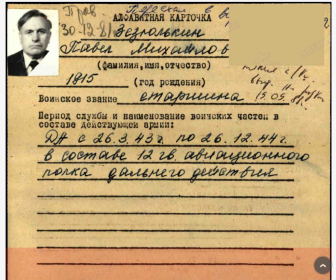 30-12-81
АЛФАВИТНАЯ КАРТОЧКА
Зезюлькин
Павел Михайлов
(фамилия, имя, отчество)
1915 (год рождения)
Воинское звание старшина
15.09.81г.
Период службы и наименование воинских частей в
составе действующей армии:
ДА с 26.3.43г. по 26.12.44г.
в составе 12 гв. авиационного
полка дальнего действия